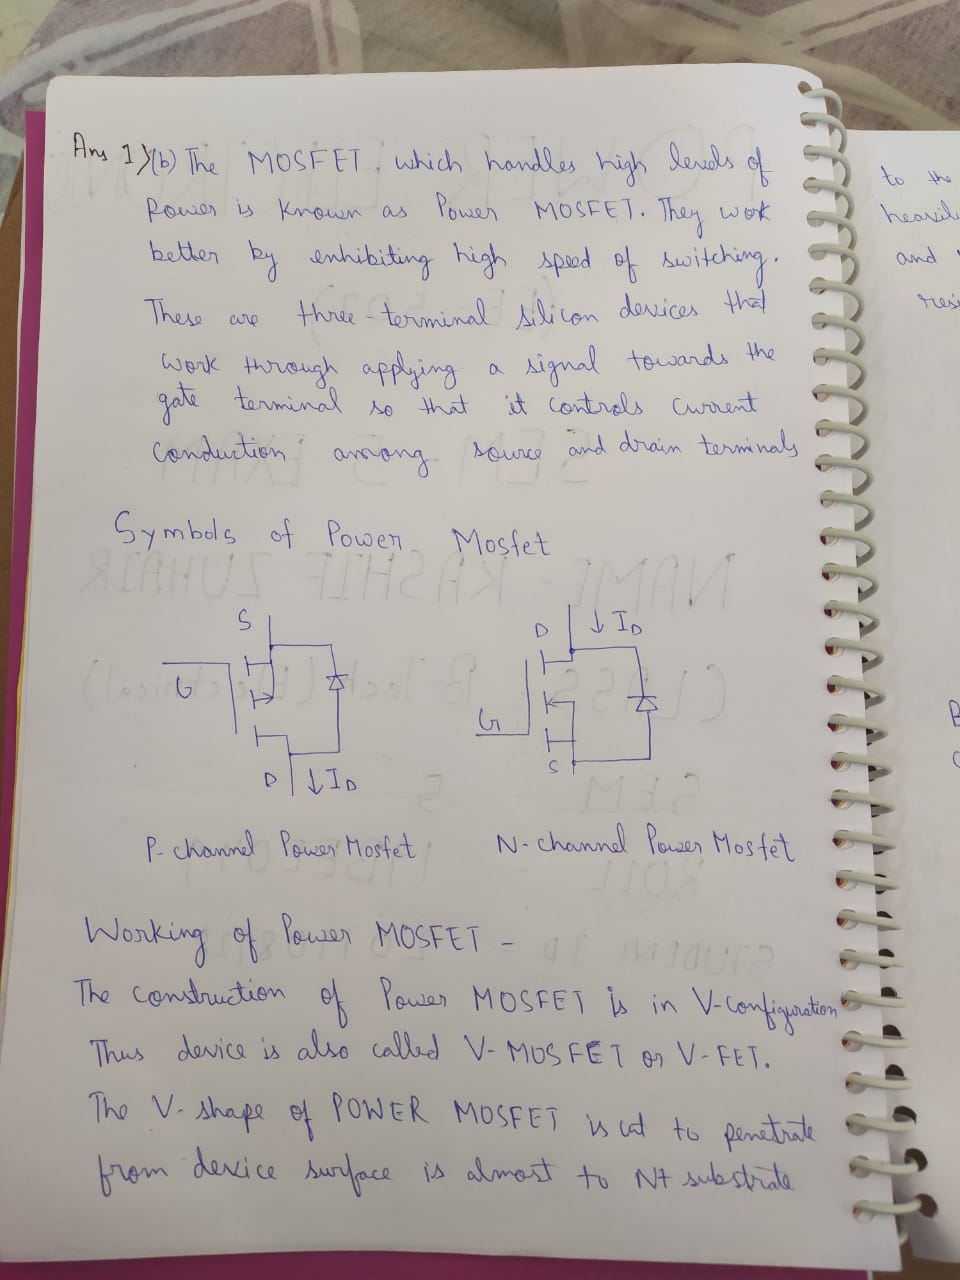 Ans 1)(b) The MOSFET which handles high levels of
Power is Known as Power MOSFET. They work
better by enhibiting high speed of switching.
These are three-terminal silicon devices that
work through applying a signal towards the
gate terminal so that it controls current
conduction among source and drain terminals
Symbols of Power Mosfet
S
G
D ↓ ID
D ↓ ID
G
S
P-channel Power Mosfet
N-channel Power Mosfet
Working of Power MOSFET -
The construction of Power MOSFET is in V-configuration
Thus device is also called V-MOSFET or V-FET.
The V-shape of POWER MOSFET is cut to penetrate
from device surface is almost to N+ substrate
to the
heavily
and